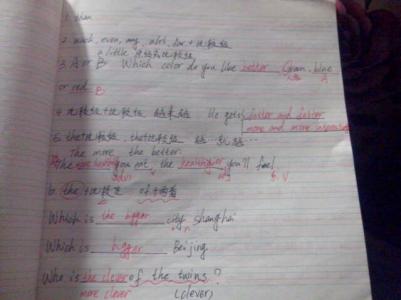 1. than
2. much, even, any, a lot, far + 比较级
a little 修饰比较级
3 A or B. Which color do you like better Green, blue
or red A
B
4. 比较级+比较级 越来越 He gets faster and faster
more and more
5. the+比较级, the+比较级 越…就越…
The more the better.
The you eat, the healthier you'll feel.
adv adj S. V
6. the +比较级 of+两者
Which is the bigger city, shanghai
Which is bigger Beijing
Who is the clever of the twins?
more clever (clever)